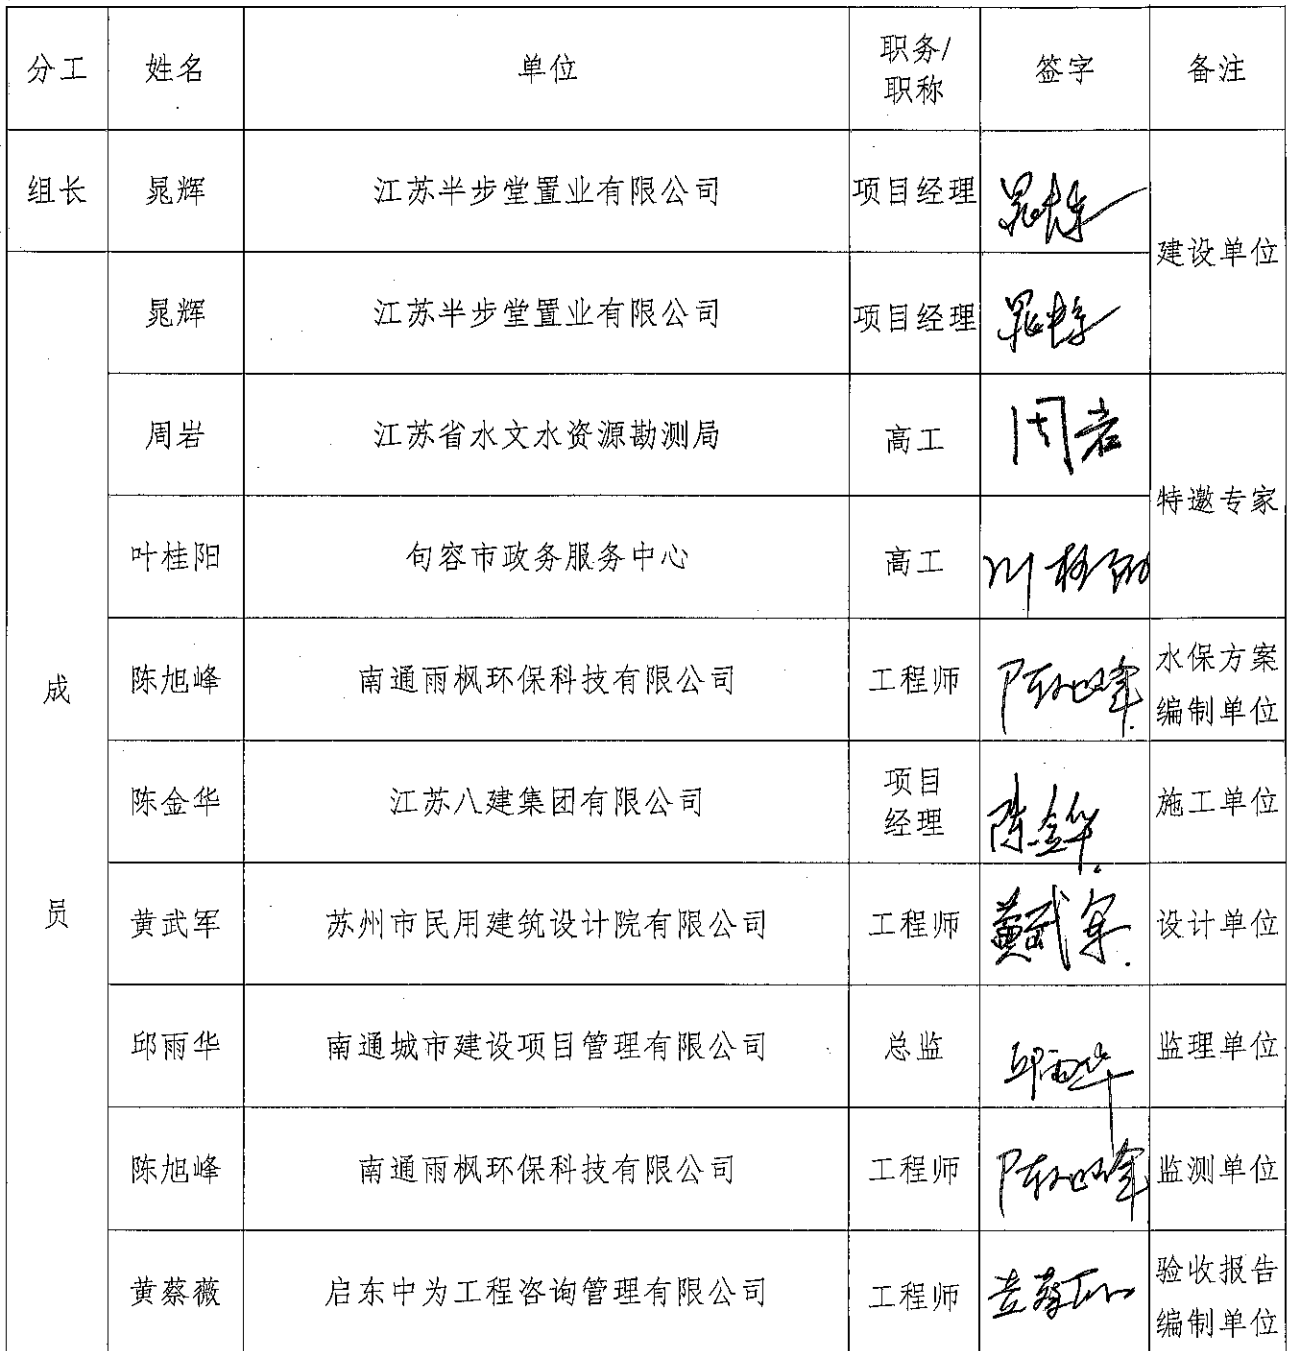 分工 姓名 单位 职务/职称 签字 备注
组长 晁辉 江苏半步堂置业有限公司 项目经理 晁辉 建设单位
成员 晁辉 江苏半步堂置业有限公司 项目经理 晁辉
周岩 江苏省水文水资源勘测局 高工 周岩 特邀专家
叶桂阳 句容市政务服务中心 高工 叶桂阳
陈旭峰 南通雨枫环保科技有限公司 工程师 陈旭峰 水保方案编制单位
陈金华 江苏八建集团有限公司 项目经理 陈金华 施工单位
黄武军 苏州市民用建筑设计院有限公司 工程师 黄武军 设计单位
邱雨华 南通城市建设项目管理有限公司 总监 邱雨华 监理单位
陈旭峰 南通雨枫环保科技有限公司 工程师 陈旭峰 监测单位
黄蔡薇 启东中为工程咨询管理有限公司 工程师 黄蔡薇 验收报告编制单位